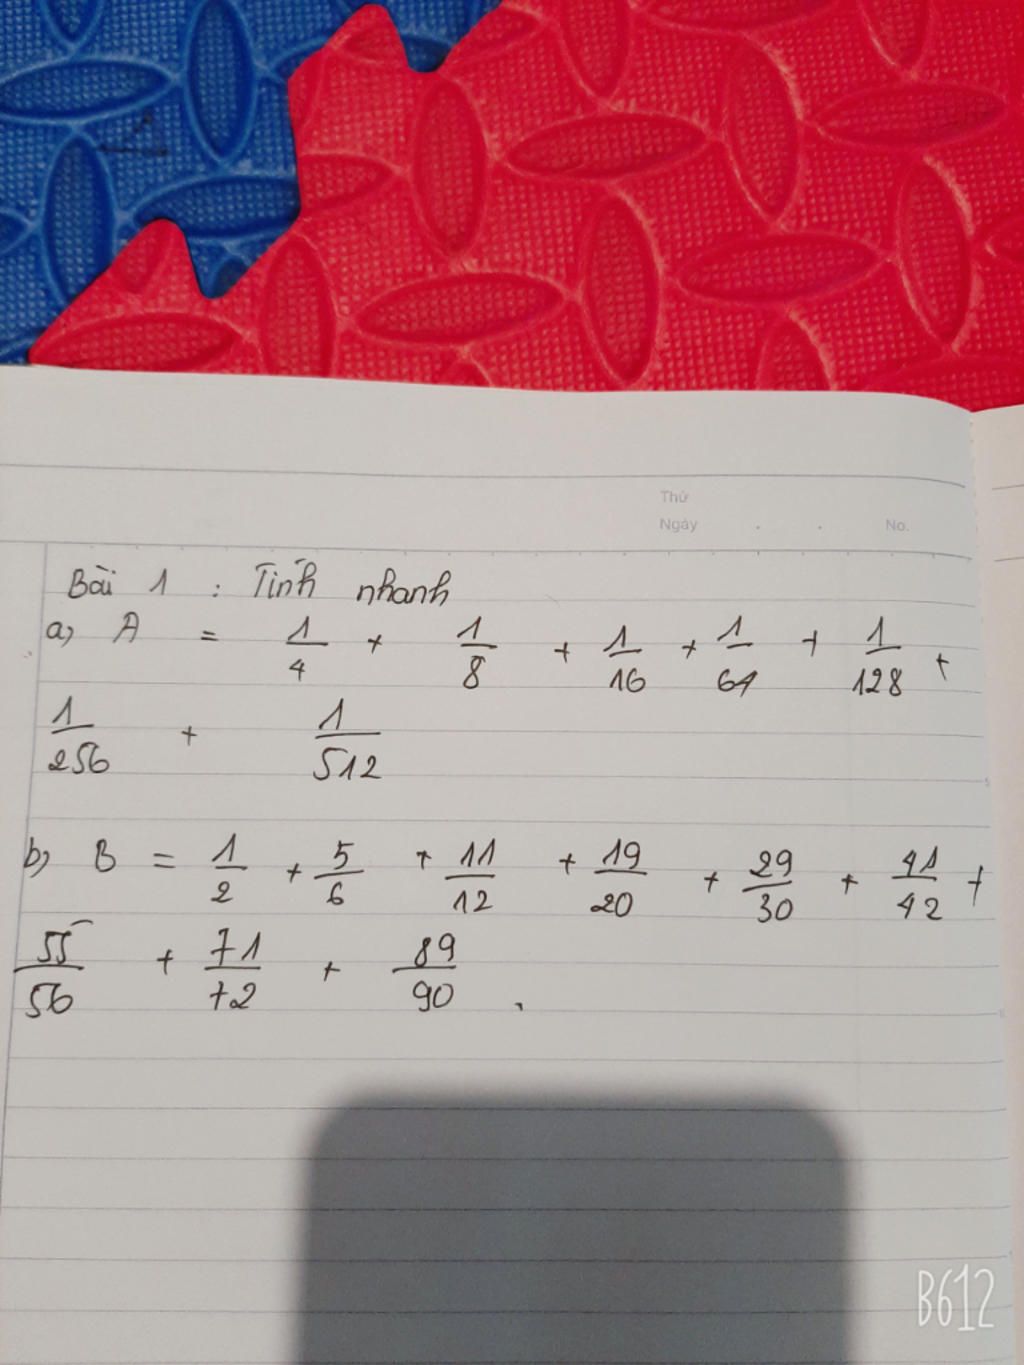 Thứ
Ngày . . No.
Bài 1 : Tính nhanh
a, A = 1/4 + 1/8 + 1/16 + 1/64 + 1/128 +
1/256 + 1/512
b, B = 1/2 + 5/6 + 11/12 + 19/20 + 29/30 + 41/42 +
55/56 + 71/72 + 89/90 .
B612